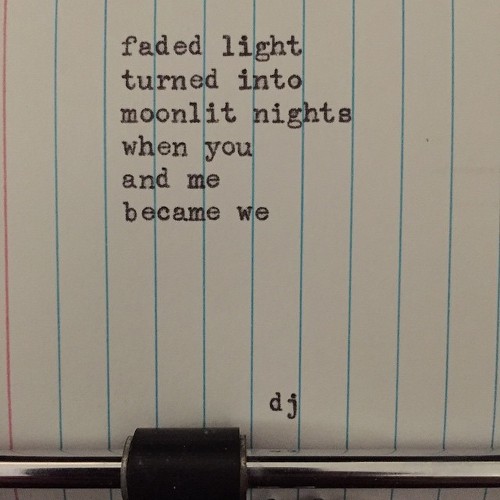 faded light
turned into
moonlit nights
when you
and me
became we
dj